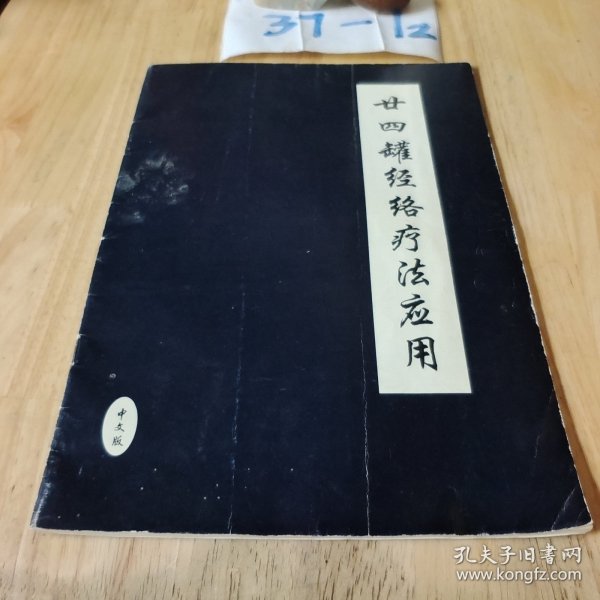 37-12
廿四罐经络疗法应用
中文版
孔夫子旧书网
www.kongfz.com